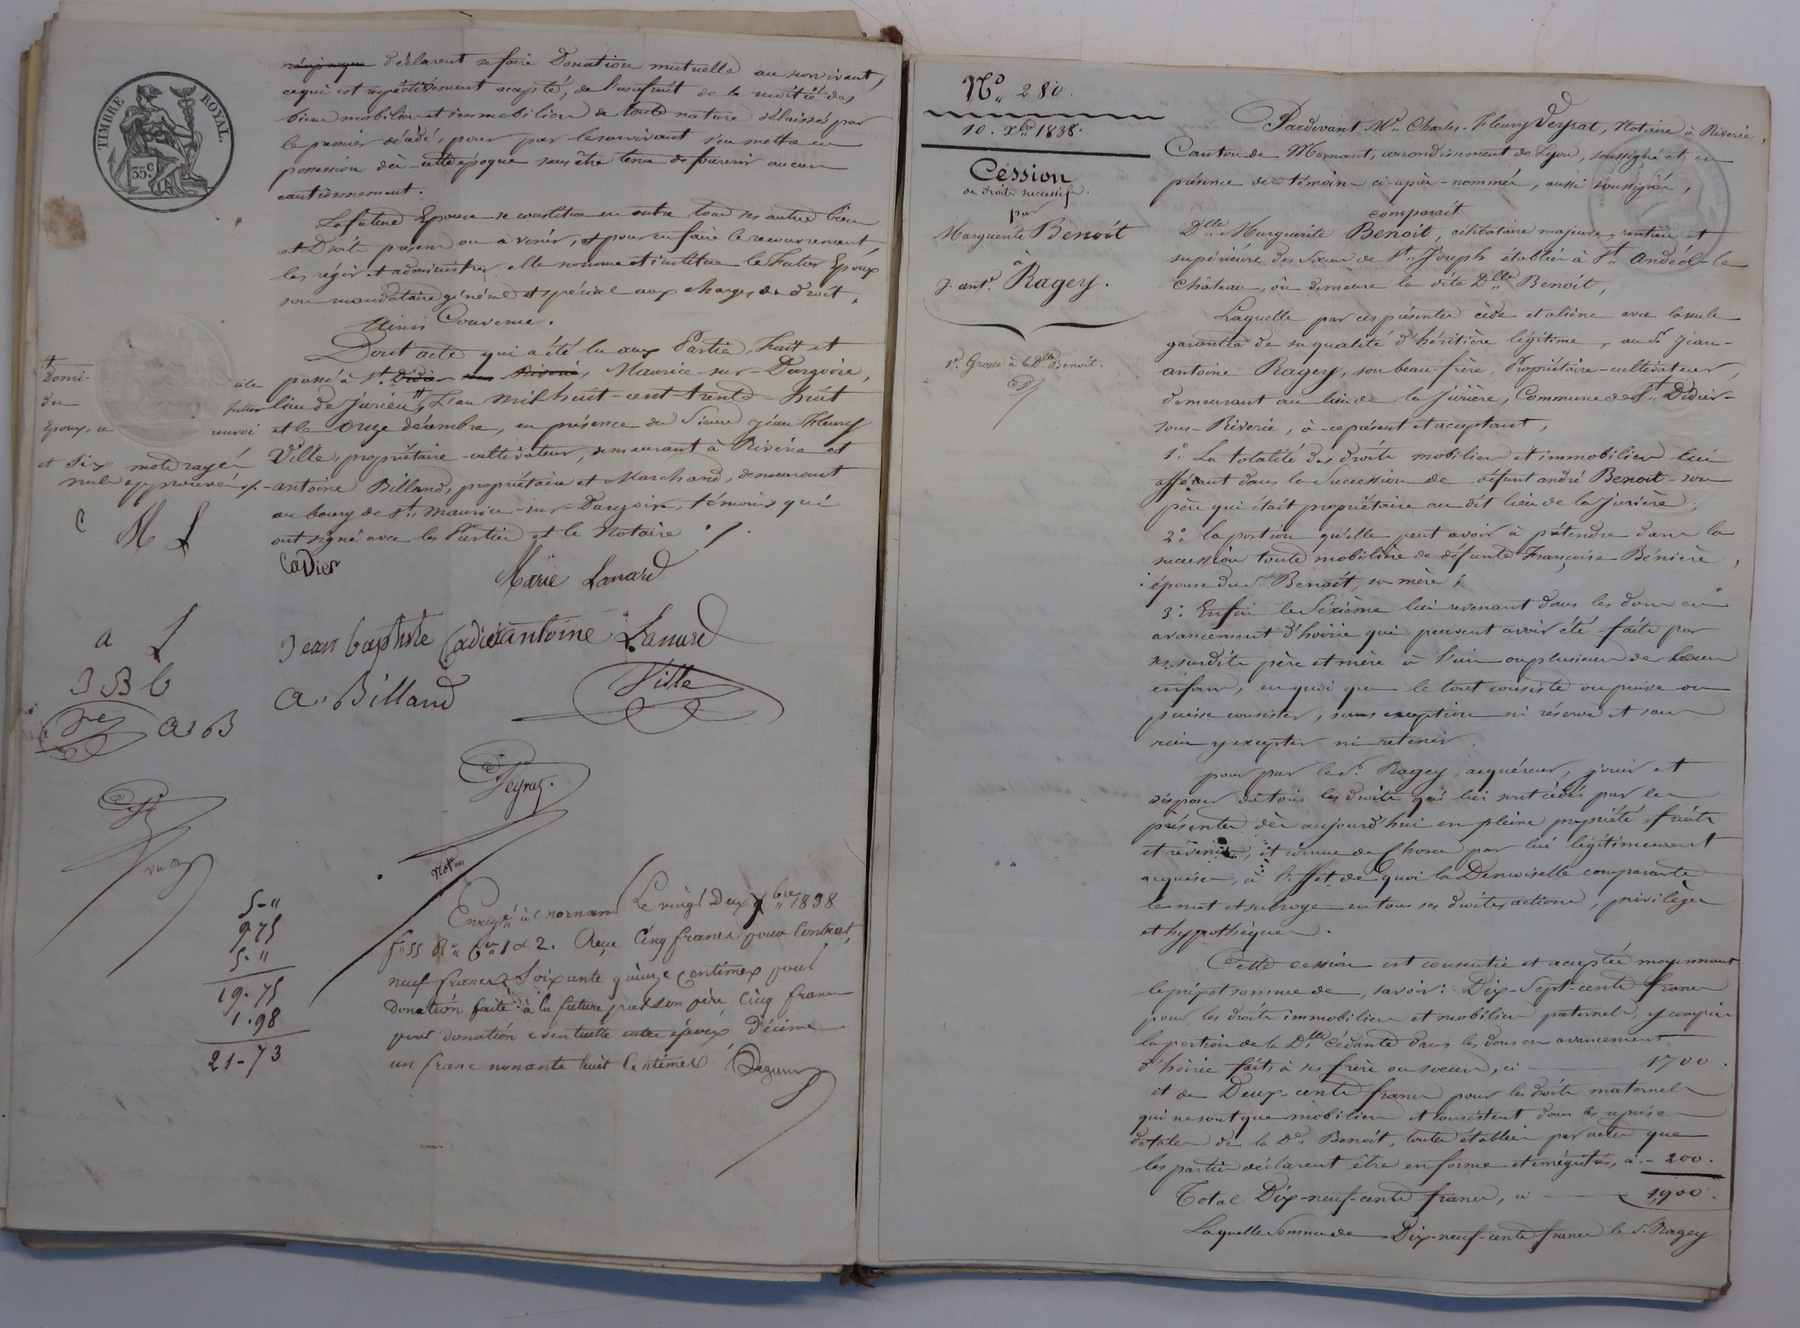 TIMBRE ROYAL
35c
déclarent se faire Donation mutuelle au survivant,
ce qui est respectivement accepté, de l'usufruit de la moitié des
biens mobiliers et immobiliers de toute nature délaissés par
le premier décédé, pour par le survivant s'en mettre en
possession dès-cette époque sans être tenu de fournir aucun
cautionnement.
La future Epouse se constitue en outre tous ses autres biens
et Droits présens ou à venir, et pour en faire le recouvrement,
les régir et administrer, elle nomme et institue le futur Epoux
son mandataire général et spécial aux charges de droit.
Ainsi Convenu.
Dont acte qui a été lu aux Parties, Fait et
passé à St. Didier sous Riverie, Maurice-sur-Dargoire,
lieu de Jurieu, L'an mil huit-cent-trente-huit
et le onze décembre, en présence de Sieurs Jean-Fleury
Ville, propriétaire-cultivateur, demeurant à Riverie et
antoine Billand, propriétaire et Marchand, demeurant
au bourg de St. Maurice-sur-Dargoire, témoins qui
ont signé avec les Parties et le Notaire ./.
domi-
cile
du
futur
Epoux, ce
renvoi
et six mots rayés
nuls approuvés ./.
C
M L
a L
J B C
A B
Cadier
Marie Lanard
Jean baptiste Cadier antoine Lanard
A. Billand
Ville
Veyrat.
Not.re
5-"
9 75
5-"
19. 75
1. 98
21-73
Enreg.é à Mornant Le vingt Deux Xbre 1838
f° 55 R° Cses 1 & 2. Reçu Cinq francs pour Contrat,
neuf francs Soixante quinze Centimes pour
donation faite à la future par son père, Cinq francs
pour donation éventuelle entre époux, Décime
un franc nonante huit Centimes
N° 280.
10. Xbre 1838.
Cession
de droits successifs.
par
Marguerite Benoit
à
J. ant. Ragey.
1e Grosse à la Dlle Benoit.
Pardevant Me Charles-Fleury Veyrat, Notaire à Riverie,
Canton de Mornant, arrondissement de Lyon, soussigné et en
présence des témoins ci-après-nommés, aussi soussignés,
comparait
Dlle Marguerite Benoit, célibataire majeure, rentière et
supérieure des Sœurs de St. Joseph établies à St. Andéol-le-
Château, où demeure la dite Dlle Benoit,
Laquelle par ces présentes cède et aliène avec la seule
garantie de sa qualité d'héritière légitime, au Sr Jean-
antoine Ragey, son beau-frère, Propriétaire-cultivateur,
demeurant au lieu de la Jurière, Commune de St. Didier-
sous-Riverie, à ce présent et acceptant,
1° La totalité des droits mobiliers et immobiliers lui
afférant dans la Succession de défunt andré Benoit son
père qui était propriétaire au dit lieu de la Jurière;
2° la portion qu'elle peut avoir à prétendre dans la
succession toute mobilière de défunte Françoise Bénière,
épouse du Sr Benoit, sa mère;
3° Enfin le Sixième lui revenant dans les dons en
avancement d'hoirie qui peuvent avoir été faits par
ses susdits père et mère à l'un ou plusieurs de leurs
enfans, en quoi que le tout consiste ou puisse ou
puisse consister, sans exception ni réserve et sans
rien y excepter ni retenir.
pour par le Sr Ragey, acquéreur, jouir et
disposer de tous les droits qui lui sont cédés par les
présentes dès aujourd'hui en pleine propriété, fruits
et revenus, et comme de Chose par lui légitimement
acquise, à l'effet de quoi la Demoiselle comparante
le met et subroge en tous ses droits, actions, privilèges
et hypothèques.
Cette cession est consentie et acceptée moyennant
le prix et somme de, savoir: Dix-Sept-cents francs
pour les droits immobiliers et mobiliers paternels, y compris
la portion de la Dlle Cédante dans les dons en avancement
d'hoirie faits à ses frères ou sœurs, ci 1700.
et de Deux-cents francs pour les droits maternels
qui ne sont que mobiliers et consistent dans les reprises
dotales de la De Benoit, toutes établies par actes que
les parties déclarent être en forme et enrégistrés, ci - 200.
Total Dix-neuf-cents francs, ci 1,900.
Laquelle Somme de Dix-neuf-cents francs le Sr Ragey